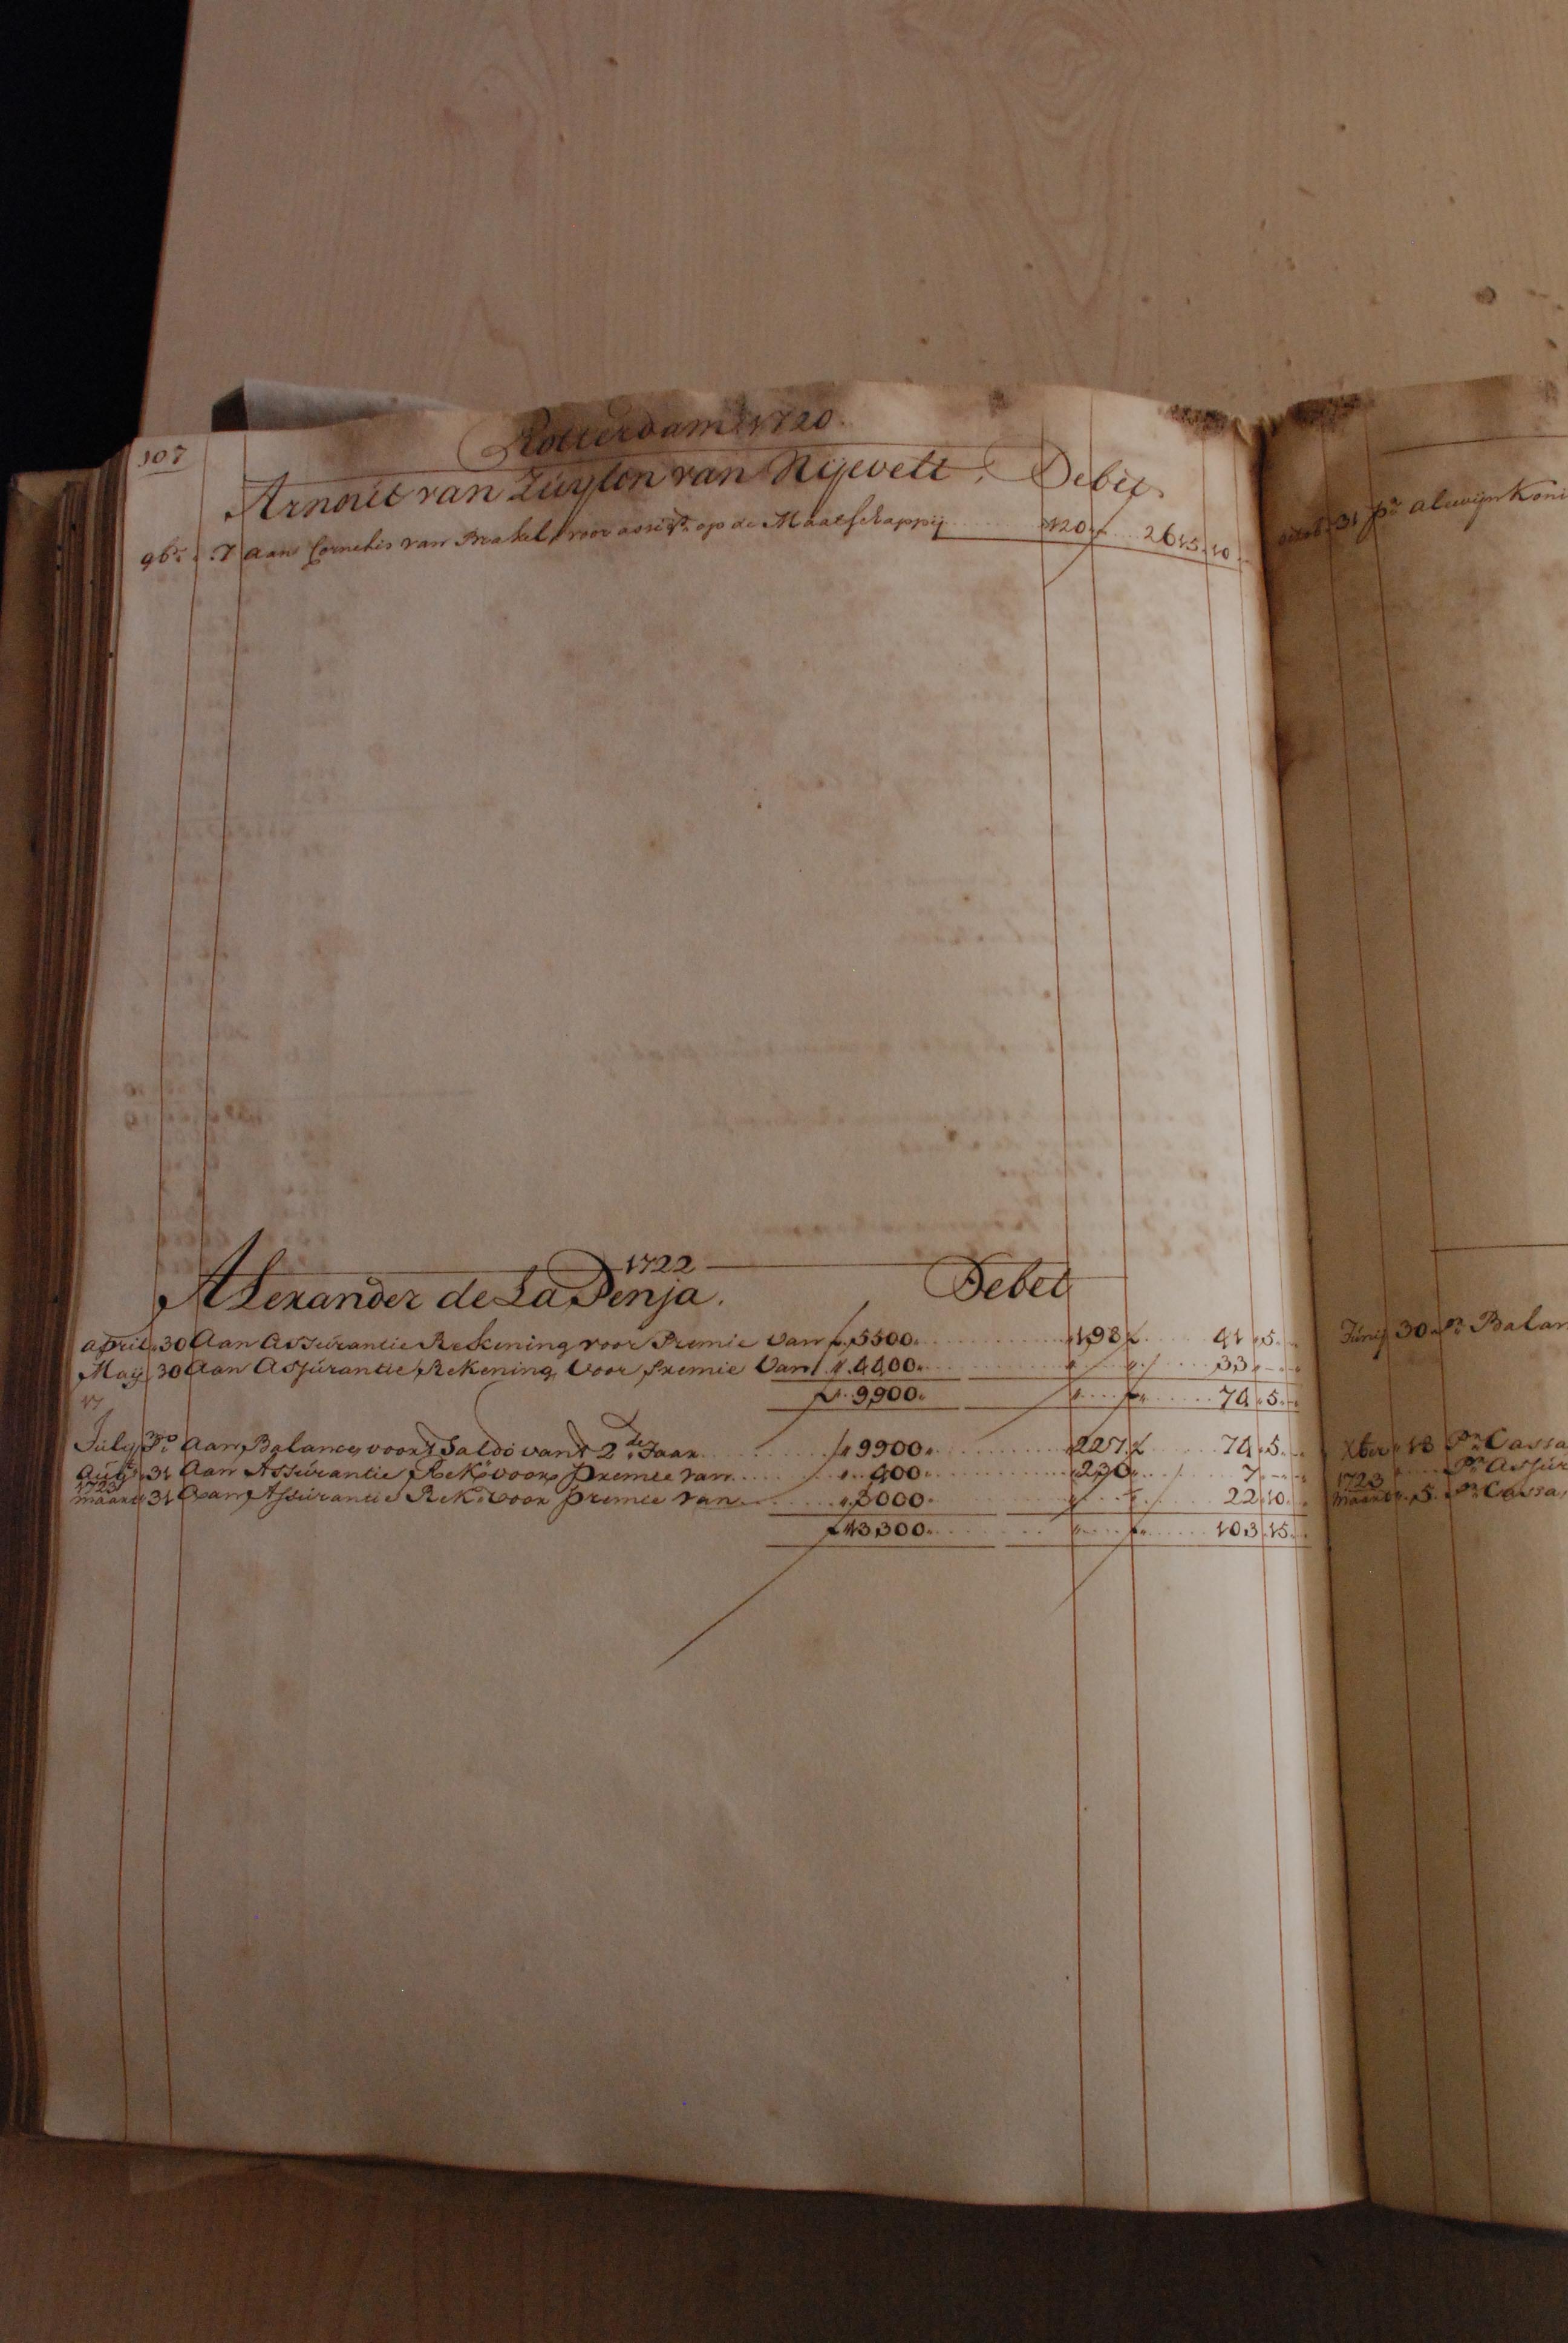 107
Rotterdam 1720.
Arnout van Zuylen van Nijevelt. Debet
9br. 7 Aan Cornelis van Brakel, voor assig.. op de Maatschappij 120 f 2615.10
1722
Alexander de La Penja. Debet
april 30 Aan Assurantie Rekening voor Premie van f 5500. 198 f 41.5.
May 30 Aan Assurantie Rekening Voor Premie Van " 4400. " " 33.-.-
f 9,900. " f 74.5.-
July Aan Balance voor 't Saldo van 't 2de Jaar " 9900. 227 f 74.5.
Aug. 31 Aan Assurantie Rek. voor Premie van " 400. 230 7.-.-
1723
maart 31 Aan Assurantie Rek. voor premie van " 3000. " " 22.10.
f 13,300. " f 103.15.
octob. 31 Pr. alewijn Koni
Junij 30 Pr. Balan
Xber 13 Pr. Cassa
Pr. Assur
1723
maart 5. Pr. Cassa